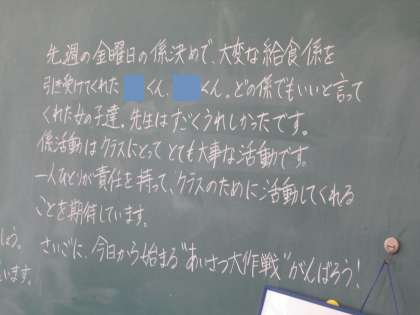 先週の金曜日の係決めで、大変な給食係を
引き受けてくれた くん、 くん。どの係でもいいと言って
くれた女の子達。先生はすごくうれしかったです。
係活動はクラスにとって とても大事な活動です。
一人ひとりが責任を持って、クラスのために活動してくれる
ことを期待しています。
しょう。
います。
さいごに、今日から始まる"あいさつ大作戦"がんばろう!